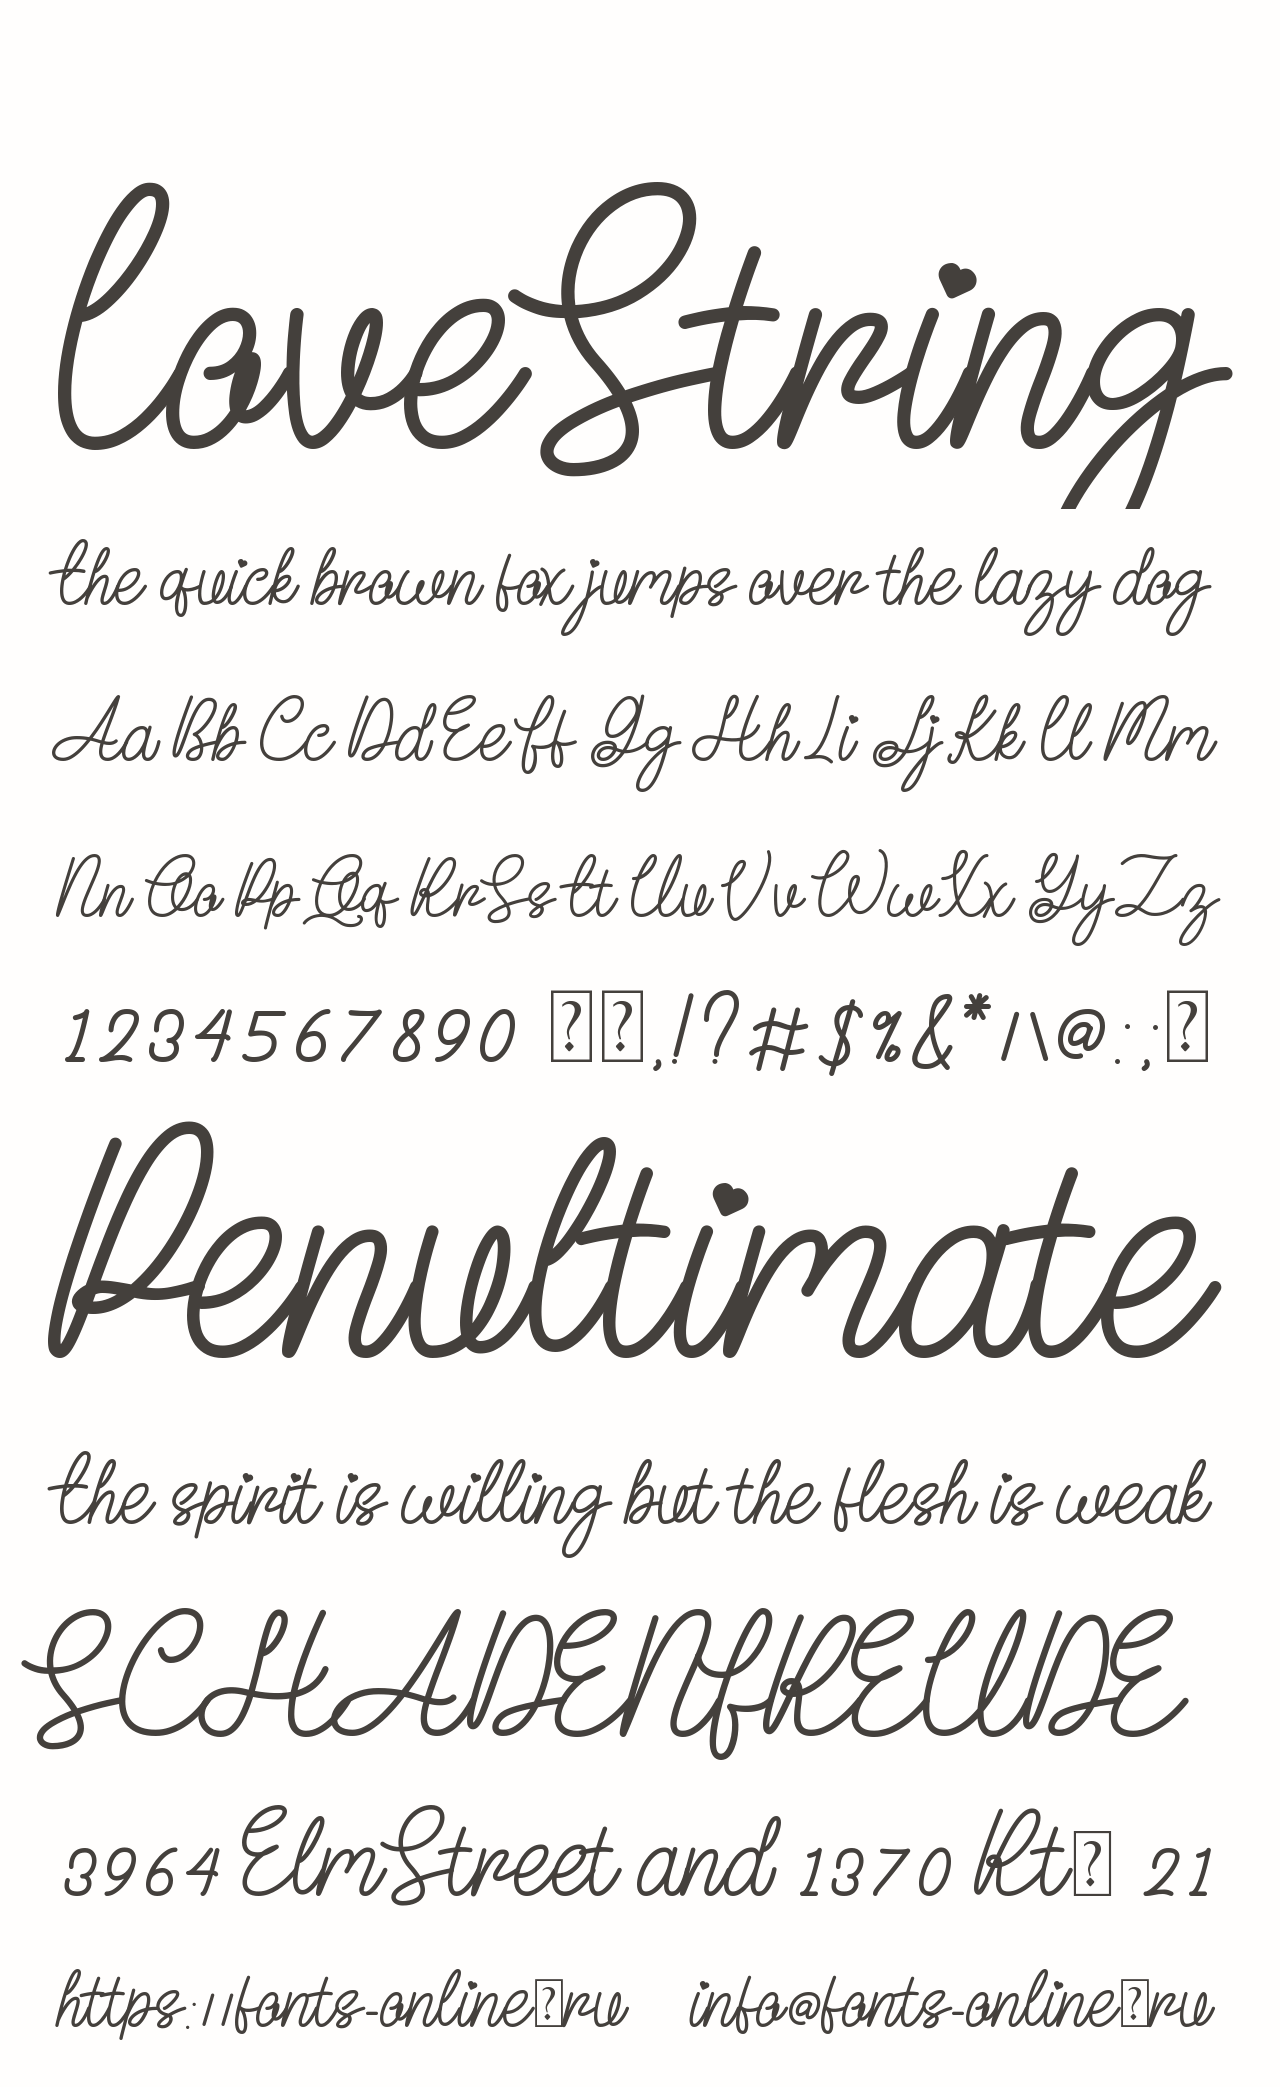 loveString
the quick brown fox jumps over the lazy dog
Aa Bb Cc Dd Ee Ff Gg Hh Ii Jj Kk Ll Mm
Nn Oo Pp Qq Rr Ss Tt Uu Vv Ww Xx Yy Zz
1234567890 ,!?#$%&*/\@:;
Penultimate
the spirit is willing but the flesh is weak
SCHADENFREUDE
3964 Elm Street and 1370 Rt 21
https://fonts-online ru info@fonts-online ru